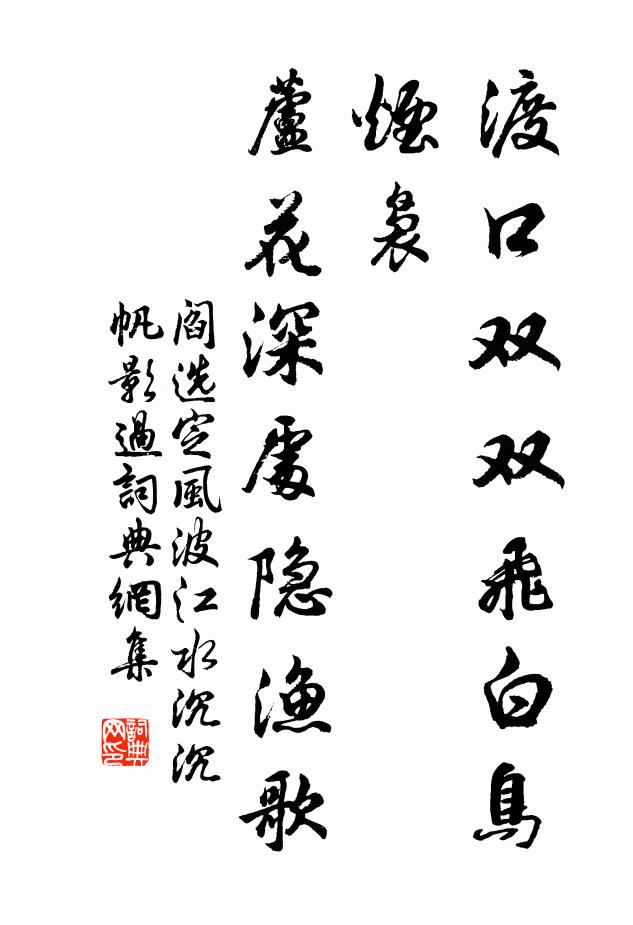 渡口双双飛白鳥
煙裊
蘆花深處隐渔歌
閻选定風波江水沉沉
帆影過詞典網集
詞典网印